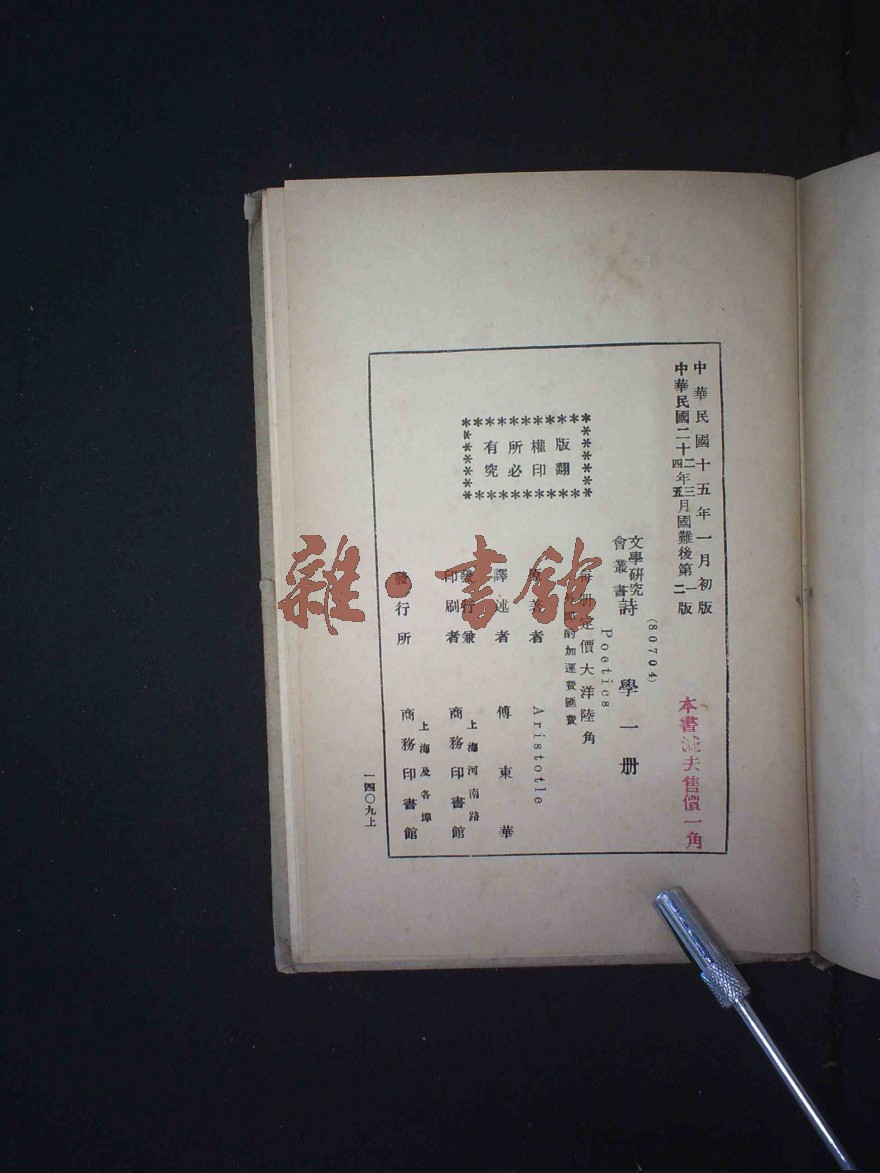 中華民國十五年一月初版
中華民國二十二年三月國難後第一版
四年五 二
本書減去售價一角
(80704)
文學研究會叢書 詩學一册
Poetics
每册定價大洋陸角
外埠酌加運費匯費
原著者 Aristotle
譯述者 傅東華
發行兼印刷者 上海河南路 商務印書館
發行所 上海及各埠 商務印書館
版權所有
翻印必究
一四〇九上
雜·書館